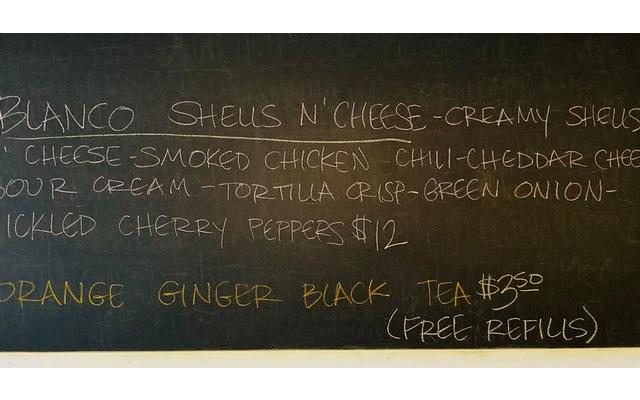 BLANCO SHELLS N' CHEESE - CREAMY SHELLS
' CHEESE - SMOKED CHICKEN - CHILI - CHEDDAR CHEE
SOUR CREAM - TORTILLA CRISP - GREEN ONION -
ICKLED CHERRY PEPPERS $12
ORANGE GINGER BLACK TEA $3.50
(FREE REFILLS)